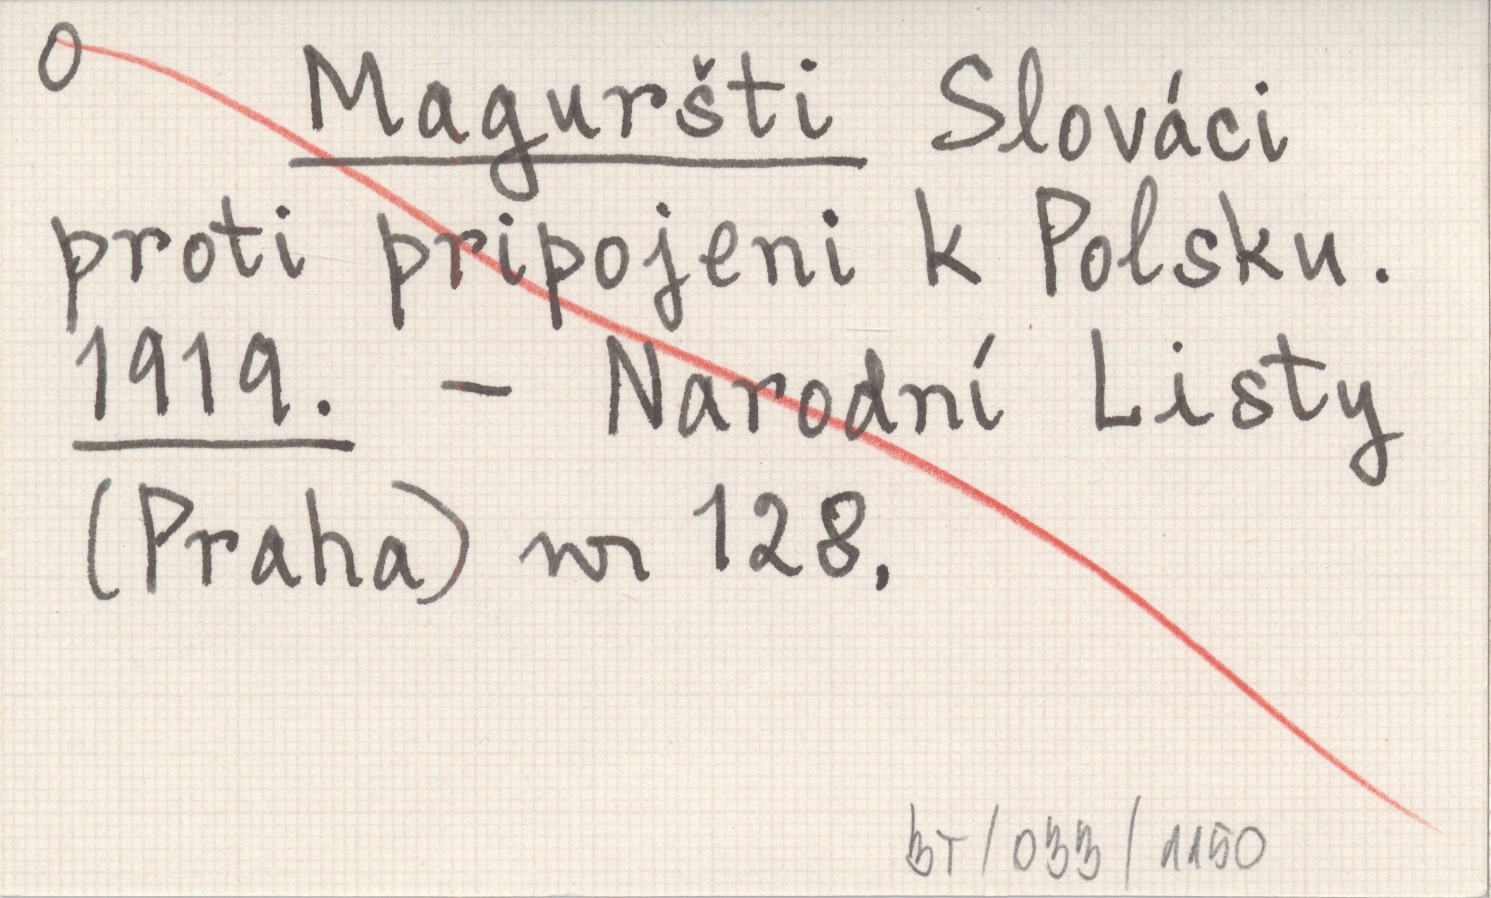 O
Maguršti Slováci
proti pripojeni k Polsku.
1919. - Narodní Listy
(Praha) nr 128.
BT/033/1150